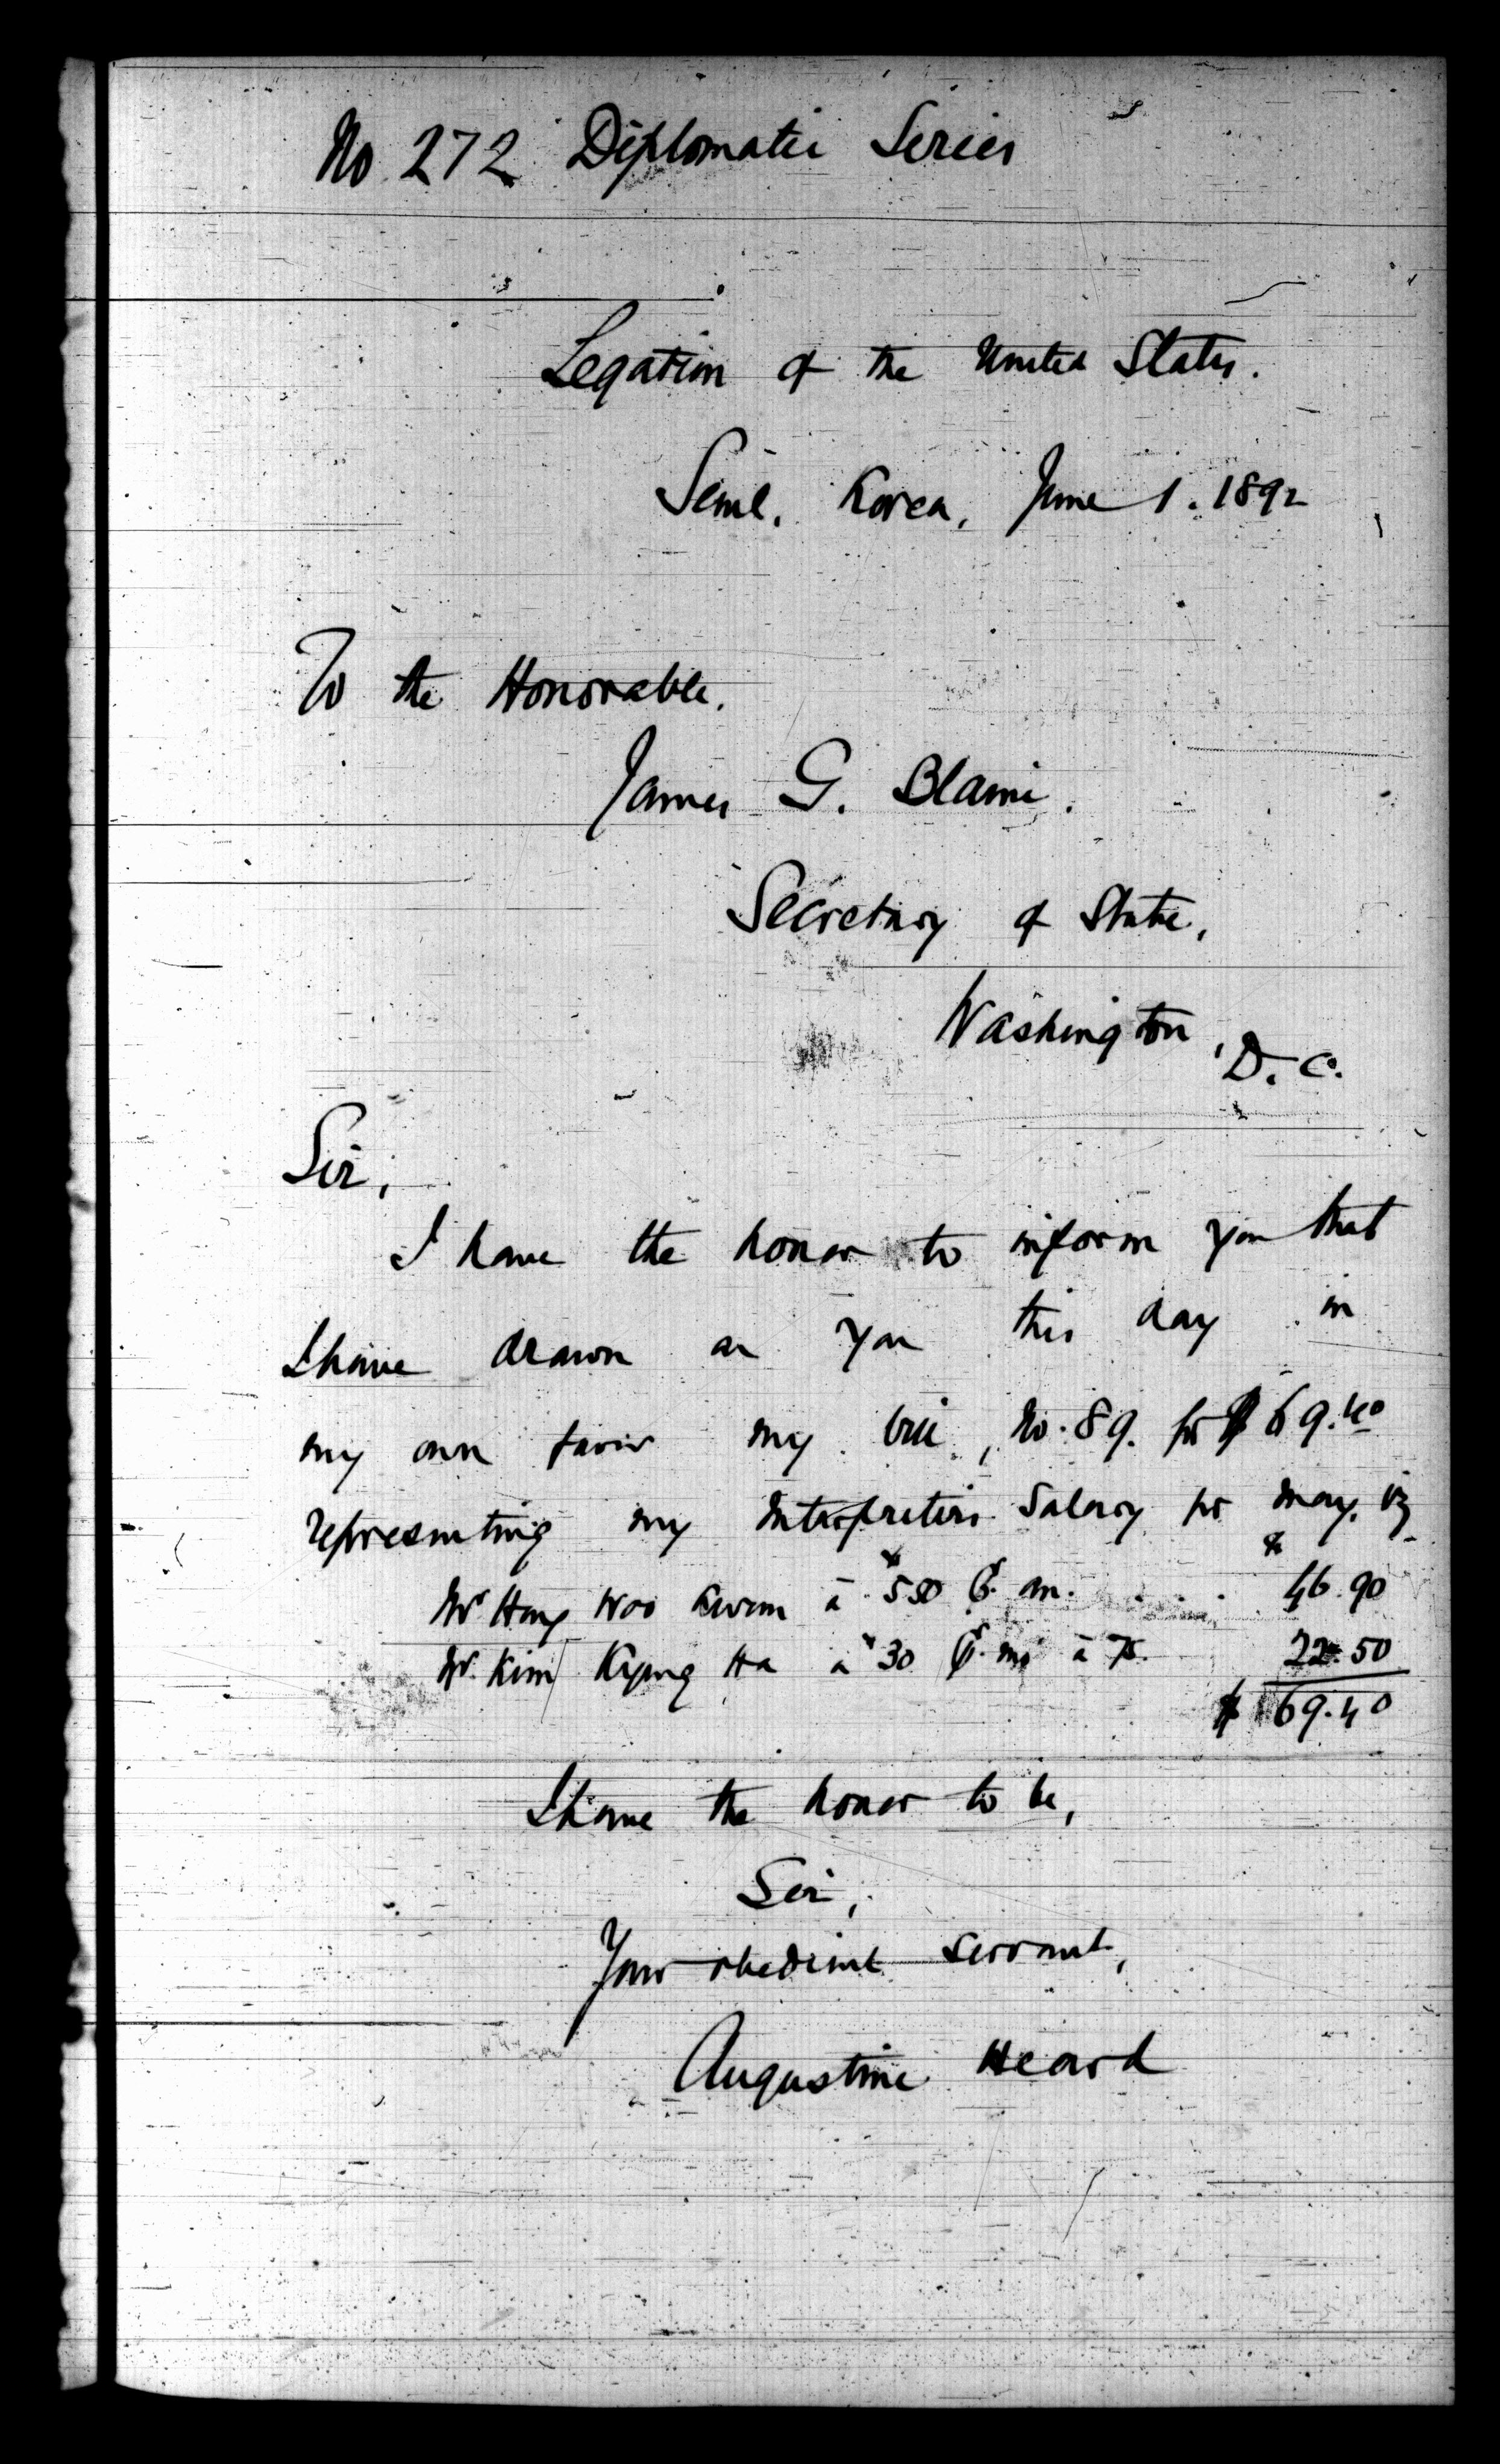 No 272 Diplomatic Series
Legation of the United States.
Seoul, Korea, June 1. 1892
To the Honorable,
James G. Blaine,
Secretary of State,
Washington, D. C.
Sir,
I have the honor to inform you that
I have drawn on you this day in
my own favor my bill, No. 89. for $69.40
representing my Interpreters Salary for May, viz
$
Mr. Hong Woo Kwan à $550 P. an. . . . . 46.90
Mr. Kim Kyung Ha à $30 P. mo à 75. 22.50
$ 69.40
I have the honor to be,
Sir,
Your obedient servant,
Augustine Heard